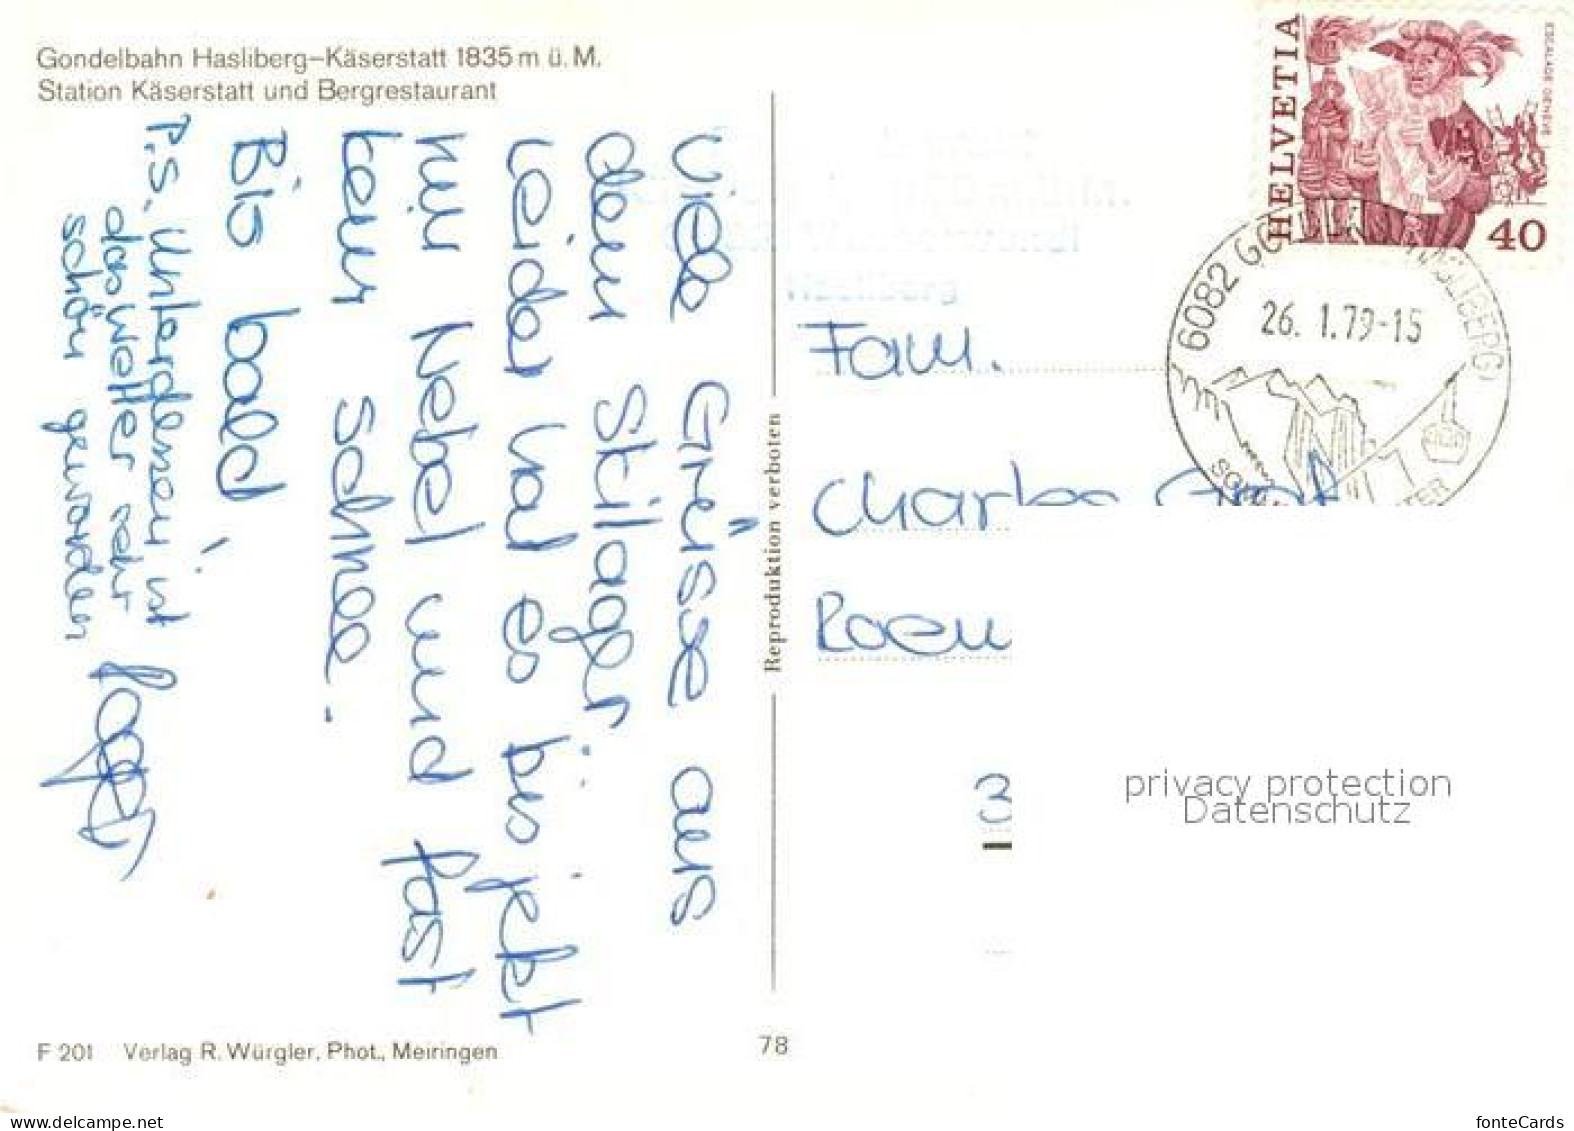 Gondelbahn Hasliberg–Käserstatt 1835 m ü. M.
Station Käserstatt und Bergrestaurant
Viele Grüsse aus
dem Skilager.
Leider hat es bis jetzt
nur Nebel und fast
kein Schnee.
Bis bald
P.S. Unterdessen ist
das Wetter sehr
schön geworden
Reproduktion verboten
HELVETIA
ESCALADE GENÈVE
40
6082
HASLIBERG)
26. 1.79-15
Hasliberg
Fam.
Charles
3
privacy protection
Datenschutz
F 201 Verlag R. Würgler, Phot., Meiringen
78
www.delcampe.net
fonteCards